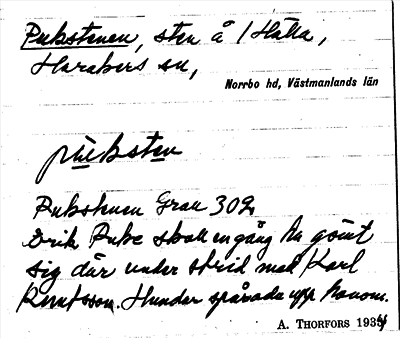 Pukstenen, sten å / Hälla,
Harakers sn,
Norrbo hd, Västmanlands län
pukstẹn
Pukstenen Grau 309.
Erik Puke skall en gång ha gömt
sig där under strid med Karl
Knutsson. Hundar spårade upp honom.
A. THORFORS 1934